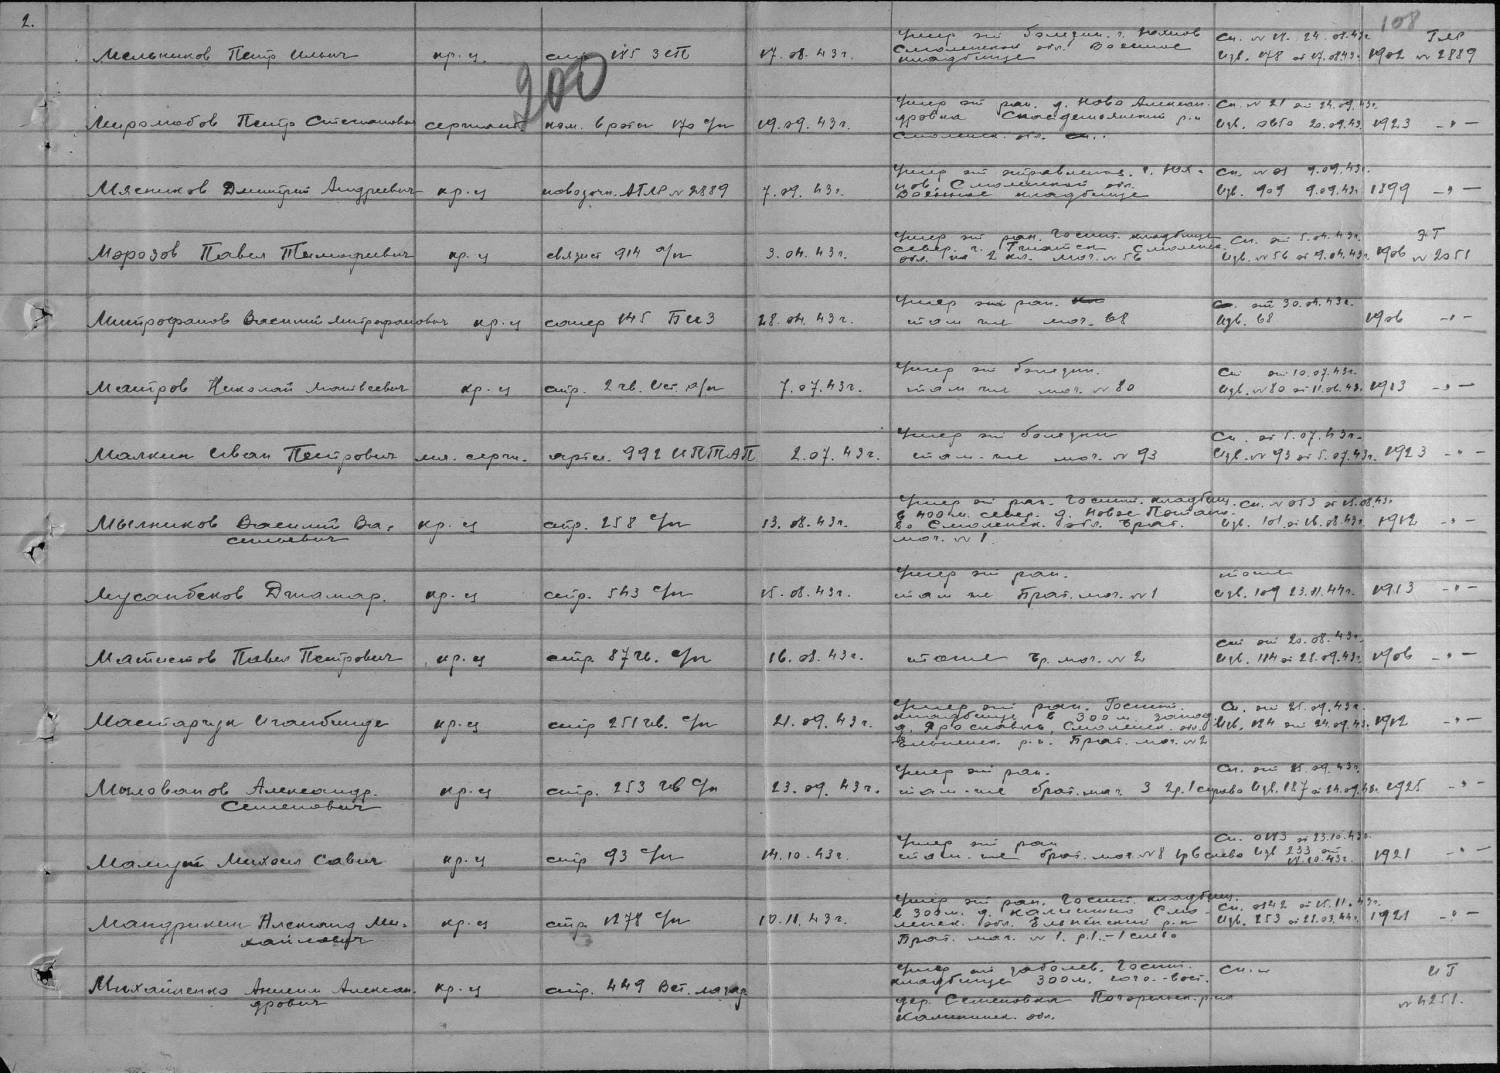 2.
108
200
Мельников Петр Ильич кр-ц. стр. 185 ЗСП 17.08.43г. Умер от болезни. г. Юхнов Смоленской обл. Военное кладбище Сп. 24.08.43г. Изв. 078 от 17.0843г. 1902 ГЛР № 2889
Миролюбов Петр Степанович сержант. ком. взвода 170 с/п 19.09.43г. Умер от ран. д. Ново Алексан- дровка Спасдеменский р-н Смоленск. обл. Сп. № 21 от 24.09.43г. Изв. 20.09.43г. 1923 -"-
Мясников Дмитрий Андреевич кр-ц повозочн. АГЛР № 2889 7.09.43г. Умер от отравления. г. Юх- нов. Смоленской обл. Военное кладбище Сп. 9.09.43г. Изв. 909 9.09.43г. 1899 -"-
Морозов Павел Тимофеевич кр-ц связист 914 с/п 3.04.43г. Умер от ран. Госпит. кладбище север. г. Гжатск Смоленск. обл. на 2 кл. мог. № 56 Сп. от 5.04.43г. Изв. № 56 от 9.04.43г. 1906 ЭГ № 2051
Митрофанов Василий Митрофанович кр-ц сапер 145 28.04.43г. Умер от ран. там же мог. 68 Сп. от 30.04.43г. Изв. 68 1906 -"-
Николай Матвеевич кр-ц стр. 2 гв. с/п 7.07.43г. Умер от болезни. там же мог. № 80 Сп от 10.07.43г. Изв. № 80 от 11.06.43. 1913 -"-
Малкин Иван Петрович мл. серж. артил. 992 ИПТАП 2.07.43г. Умер от болезни там-же мог. № 93 Сп. от 5.07.43г. Изв. № 93 от 5.07.43г. 1923 -"-
Мыльников Василий Ва- сильевич кр-ц стр. 258 с/п 13.08.43г. Умер от ран. Госпит. кладбищ. в 400 м. север. д. Новое Смоленск. обл. Брат. мог. № 1 Сп. № 053 от 15.08.43г. Изв. 101 от 16.08.43г. 1912 -"-
Мусанбеков Джамар. кр-ц стр. 543 с/п 15.08.43г. Умер от ран. там же Брат. мог. № 1 тоже Изв. 109 23.11.44г. 1913 -"-
Павел Петрович кр-ц стр. 87 гв. с/п 16.08.43г. тоже бр. мог. № 2 Сп от 20.08.43г. Изв. 114 от 28.09.43г. 1906 -"-
кр-ц стр 251 гв. с/п 21.09.43г. Умер от ран. Госпит. кладбище в 300 м. запад. д. Ярославль, Смоленск. обл. Ельненск. р-н. Брат. мог. № 2 Сп. от 25.09.43г. Изв. 184 от 24.09.43г. 1912 -"-
Милованов Александр. Семенович кр-ц стр. 253 гв с/п 23.09.43г. Умер от ран. там-же брат. мог. 3 2р. 1 справо Сп. от 25.09.43г. Изв. 187 от 24.09.43г. 1925 -"-
Михаил Савич кр-ц стр 93 с/п 14.10.43г. Умер от ран там-же брат. мог. № 8 слево Сп. от 23.10.43г. Изв 233 от 17.10.43г. 1921 -"-
Мандрикин Александ Ми- хайлович кр-ц стр. 1278 с/п 10.11.43г. Умер от ран. Госпит. кладбищ. в 300 м. д. Калинино Смо- ленск. обл. Ельнинский р-н Брат. мог. № 1. р.1.-1 слево Сп. 0142 от 15.11.43г. Изв. 253 от 1921 -"-
Михайленко Алексан- дрович кр-ц стр. 449 лазар. Умер от заболев. Госпит. кладбище 300 м. юго-вост. дер. Семеновка Погорельск. р-на Калининск. обл. Сп. ИГ № 4251.